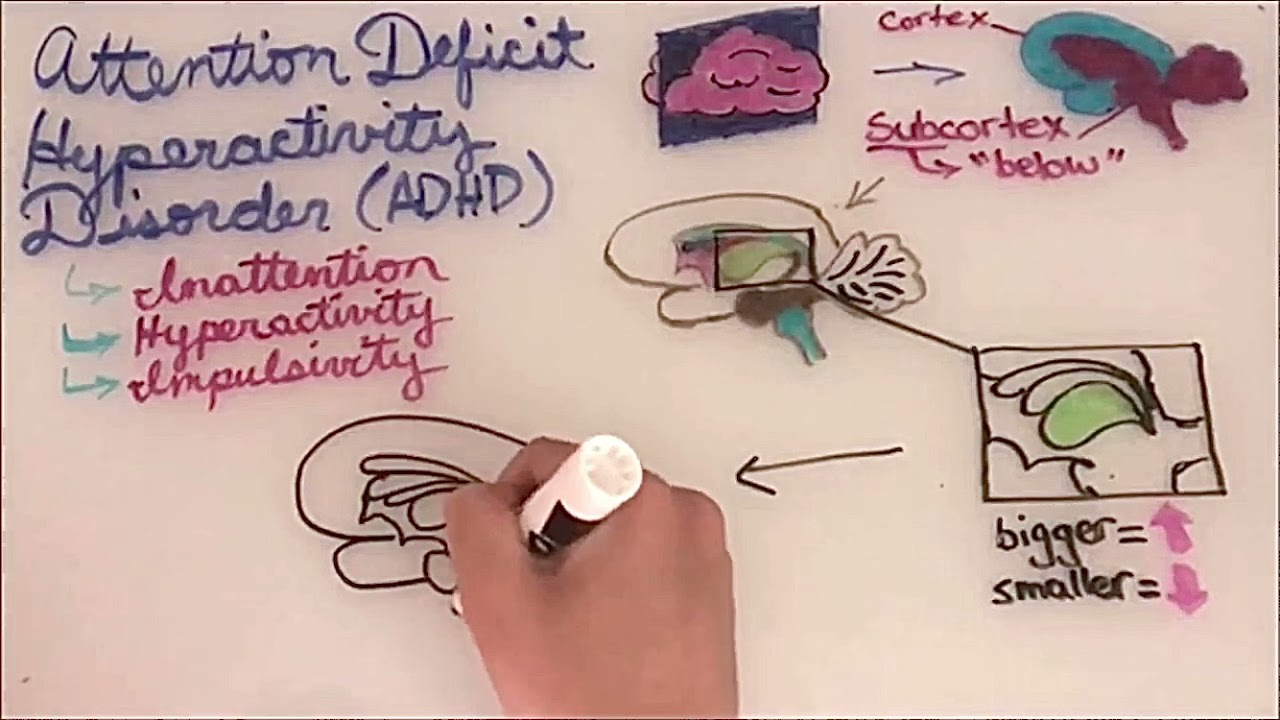 Attention Deficit
Hyperactivity
Disorder (ADHD)
Inattention
Hyperactivity
Impulsivity
Cortex
Subcortex
"below"
bigger =
smaller =